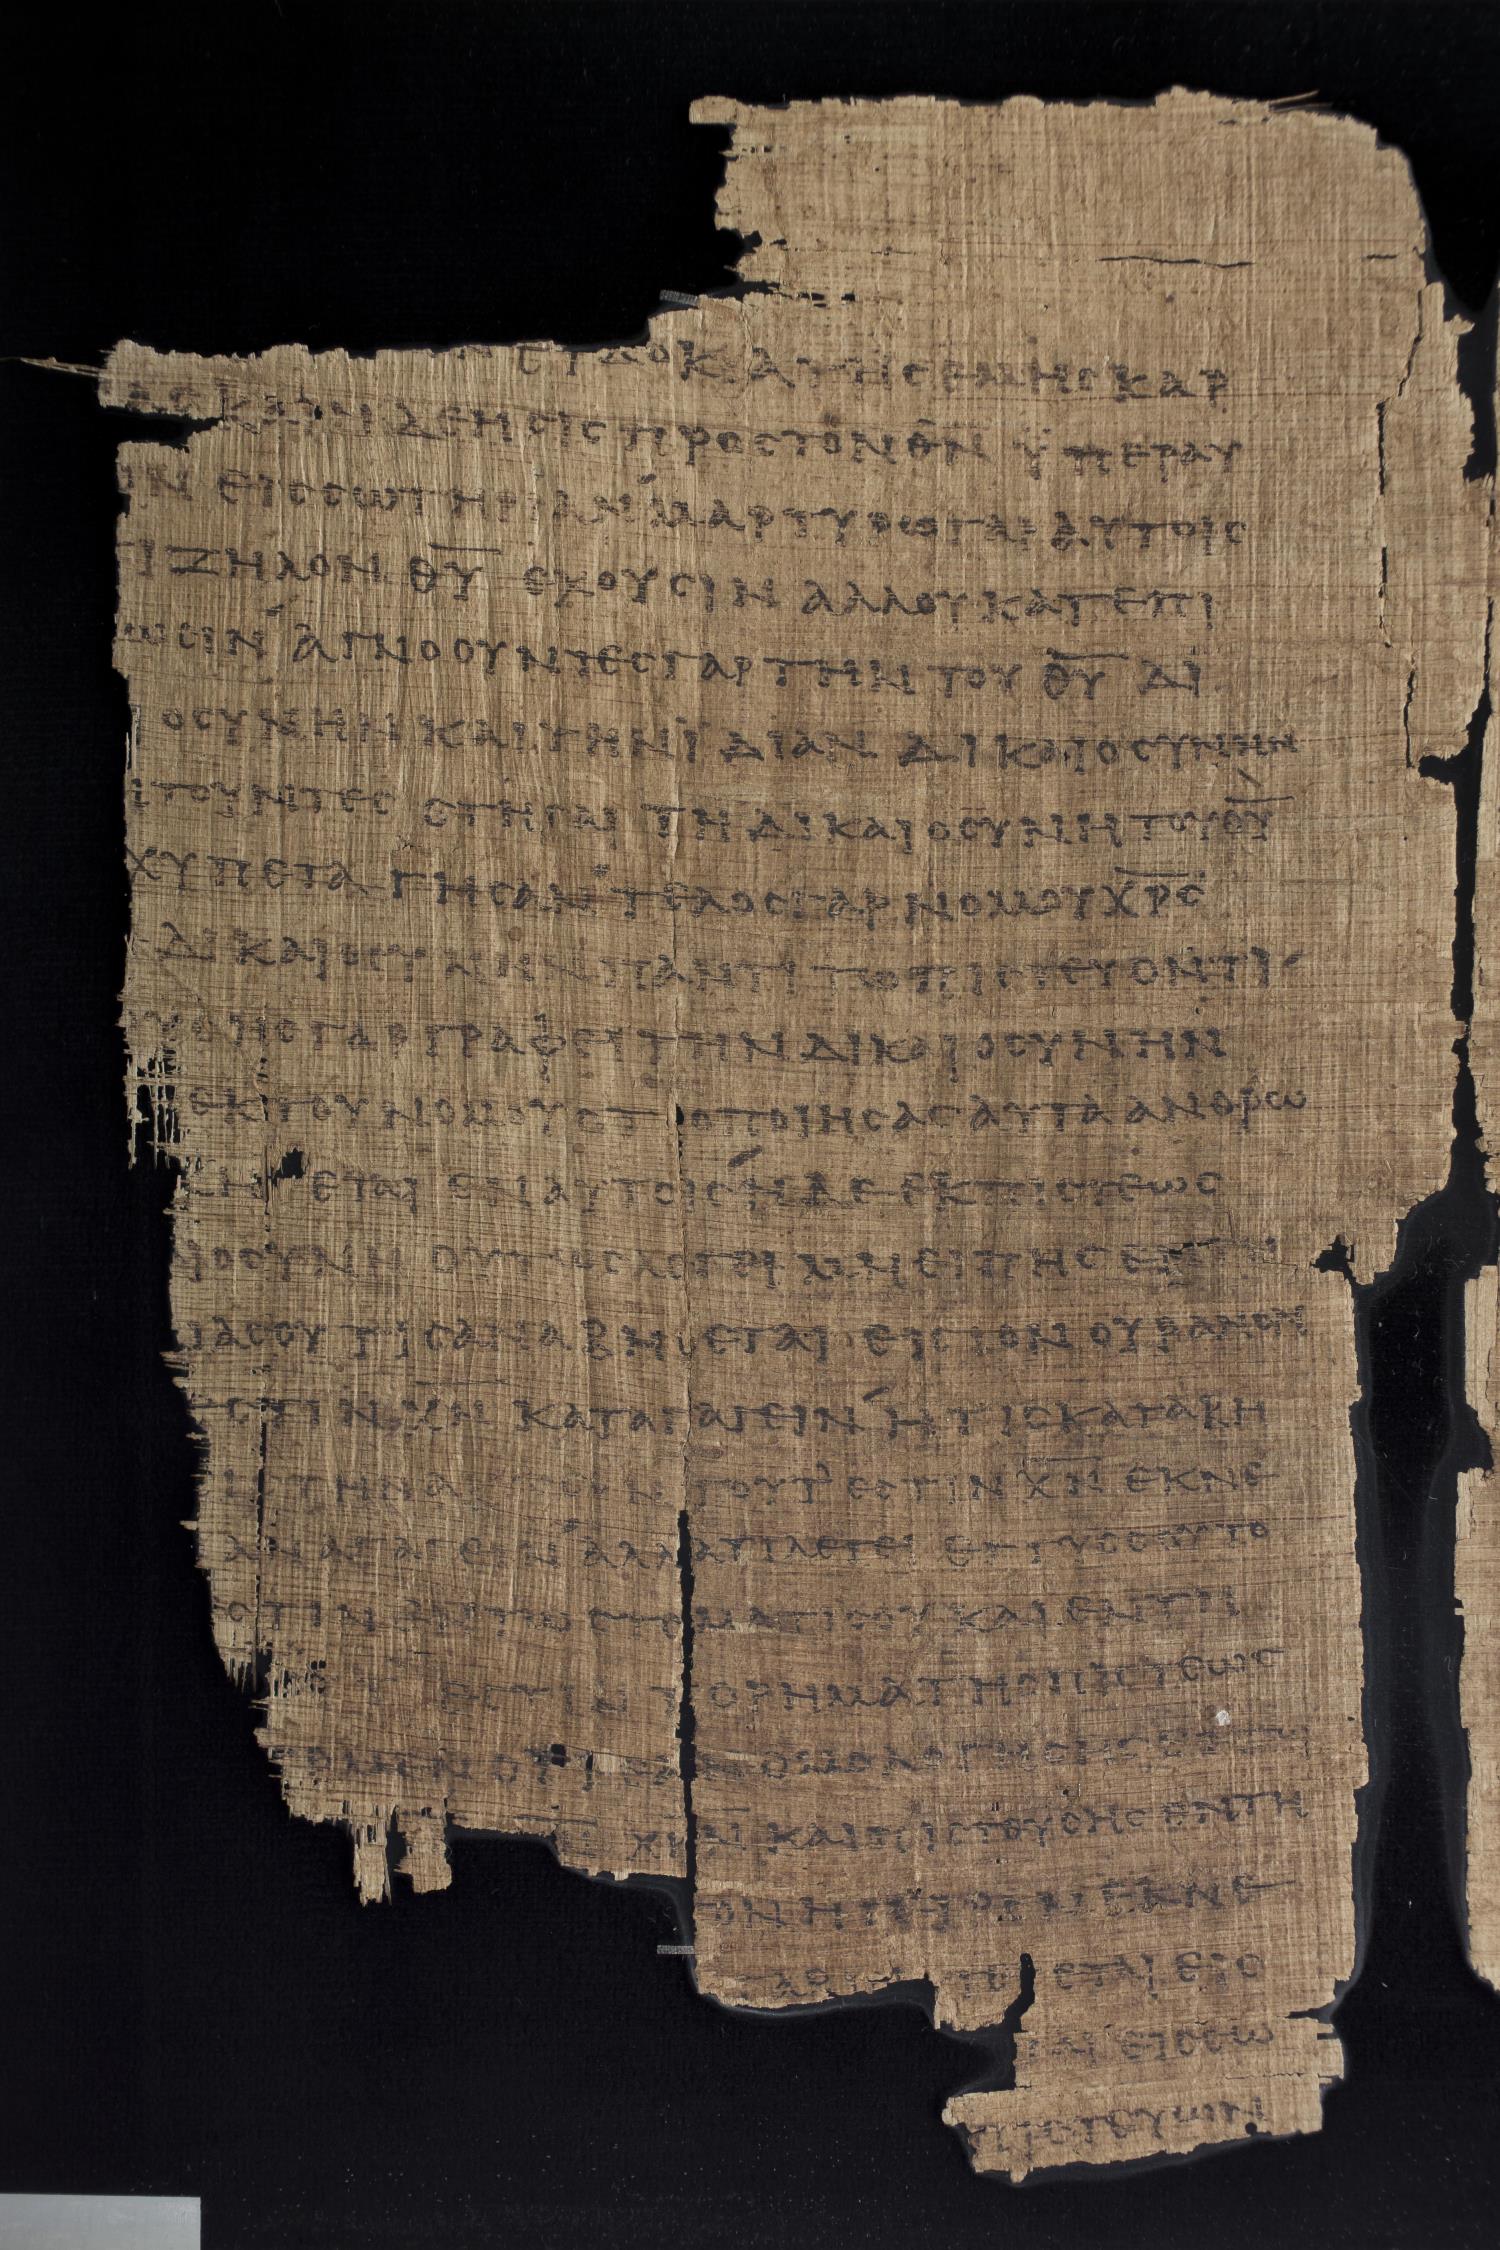 Ν ΕΥΔΟΚΙΑ ΤΗΣ ΕΜΗΣ ΚΑΡ
ΑΣ ΚΑΙ Η ΔΕΗΣΙΣ ΠΡΟΣ ΤΟΝ Θ̅Ν̅ ΫΠΕΡ ΑΥ
ΩΝ ΕΙΣ ΣΩΤΗΡΙΑΝ ΜΑΡΤΥΡΩ ΓΑΡ ΑΥΤΟΙΣ
ΤΙ ΖΗΛΟΝ Θ̅Υ̅ ΕΧΟΥΣΙΝ ΑΛΛ ΟΥ ΚΑΤ ΕΠΙ
ΝΩΣΙΝ ΑΓΝΟΟΥΝΤΕΣ ΓΑΡ ΤΗΝ ΤΟΥ Θ̅Υ̅ ΔΙ
ΙΟΣΥΝΗΝ ΚΑΙ ΤΗΝ ΪΔΙΑΝ ΔΙΚΑΙΟΣΥΝΗΝ
ΗΤΟΥΝΤΕΣ ΣΤΗΣΑΙ ΤΗ ΔΙΚΑΙΟΣΥΝΗ ΤΟΥ Θ̅Υ̅
ΧΥΠΕΤΑΓΗΣΑΝ ΤΕΛΟΣ ΓΑΡ ΝΟΜΟΥ Χ̅Ρ̅Σ̅
ΔΙΚΑΙΟΣΥΝΗΝ ΠΑΝΤΙ ΤΩ ΠΙΣΤΕΥΟΝΤΙ
ΥΣΗΣ ΓΑΡ ΓΡΑΦΕΙ ΤΗΝ ΔΙΚΑΙΟΣΥΝΗΝ
ΕΚ ΤΟΥ ΝΟΜΟΥ ΟΤΙ Ο ΠΟΙΗΣΑΣ ΑΥΤΑ ΑΝΘΡΩ
ΖΗΣΕΤΑΙ ΕΝ ΑΥΤΟΙΣ Η ΔΕ ΕΚ ΠΙΣΤΕΩΣ
ΙΟΣΥΝΗ ΟΥΤΩΣ ΛΕΓΕΙ ΜΗ ΕΙΠΗΣ ΕΝ ΤΗ
ΙΑ ΣΟΥ ΤΙΣ ΑΝΑΒΗΣΕΤΑΙ ΕΙΣ ΤΟΝ ΟΥΡΑΝΟΝ
ΕΣΤΙΝ Χ̅Ν̅ ΚΑΤΑΓΑΓΕΙΝ Η ΤΙΣ ΚΑΤΑΒΗ
ΙΣ ΤΗΝ ΑΒΥΣΣΟΝ ΤΟΥΤ ΕΣΤΙΝ Χ̅Ν̅ ΕΚ ΝΕ
ΑΝΑΓΑΓΕΙΝ ΑΛΛΑ ΤΙ ΛΕΓΕΙ ΕΓΓΥΣ ΣΟΥ ΤΟ
ΕΣΤΙΝ ΕΝ ΤΩ ΣΤΟΜΑΤΙ ΣΟΥ ΚΑΙ ΕΝ ΤΗ
ΕΣΤΙΝ ΤΟ ΡΗΜΑ ΤΗΣ ΠΙΣΤΕΩΣ
ΟΜΕΝ ΟΤΙ ΕΑΝ ΟΜΟΛΟΓΗΣΗΣ ΕΝ ΤΩ
Χ̅Ρ̅Ν̅ ΚΑΙ ΠΙΣΤΕΥΣΗΣ ΕΝ ΤΗ
ΟΝ ΗΓΕΙΡΕΝ ΕΚ ΝΕ
ΕΤΑΙ ΕΙΣ
ΑΙ ΕΙΣ ΣΩ
ΠΙΣΤΕΥΩΝ